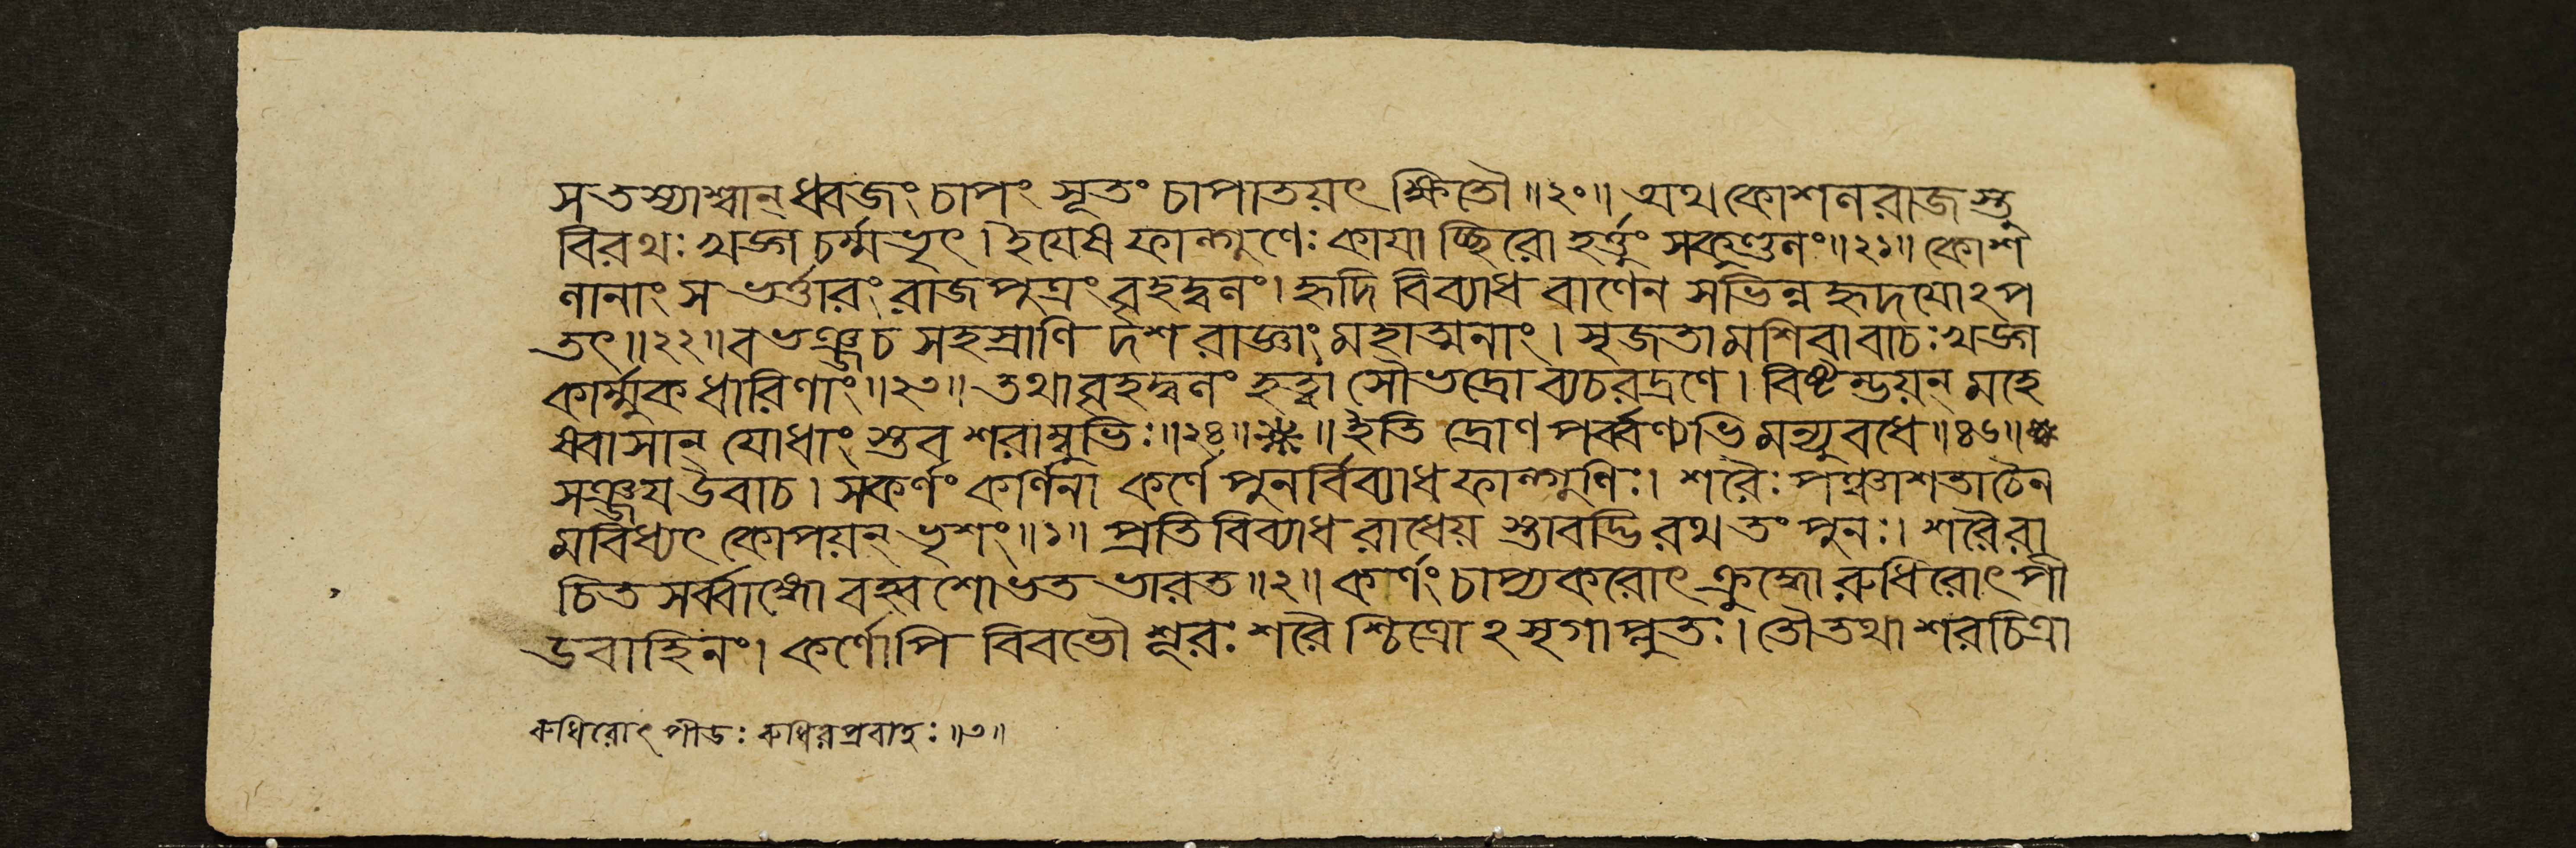 স তস্যাশ্বান্ ধ্বজং চাপং সূতং চাপাতয়ৎ ক্ষিতৌ ॥২০॥ অথ কোশলরাজস্তু
বিরথঃ খড়্গচর্ম্মভৃৎ। ইযেষ ফাল্গুণেঃ কাযাচ্ছিরো হর্ত্তুং সকুণ্ডলং ॥২১॥ কোশ
লানাং স ভর্ত্তারং রাজপুত্রং বৃহদ্বলং। হৃদি বিব্যাধ বাণেন স ভিন্নহৃদযোঽপ
তৎ ॥২২॥ বভঞ্জ চ সহস্রাণি দশ রাজ্ঞাং মহাত্মনাং। সৃজতামশিবা বাচঃ খড়্গ
কার্ম্মুকধারিণাং ॥২৩॥ তথা বৃহদ্বলং হত্বা সৌভদ্রো ব্যচরদ্রণে। বিষ্টম্ভয়ন্ মহে
ষ্বাসান্ যোধাংস্তব শরাম্বুভিঃ ॥২৪॥ ※ ॥ ইতি দ্রোণপর্ব্বণ্যভিমন্যুবধে ॥৪৬॥ ※
সঞ্জয উবাচ। স কর্ণং কর্ণিনা কর্ণে পুনর্বিব্যাধ ফাল্গুণিঃ। শরৈঃ পঞ্চাশতা চৈন
মবিধ্যৎ কোপয়ন্ ভৃশং ॥১॥ প্রতিবিব্যাধ রাধেয়স্তাবদ্ভিরথ তং পুনঃ। শরৈরা
চিতসর্ব্বাঙ্গো বহ্বশোভত ভারত ॥২॥ কর্ণং চাপ্যকরোৎ ক্রুদ্ধো রুধিরোৎপী
ডবাহিনং। কর্ণোপি বিবভৌ শূরঃ শরৈশ্চিত্রোঽসৃগাপ্লুতঃ। তৌ তথা শরচিত্রা
রুধিরোৎপীডঃ রুধিরপ্রবাহঃ ॥৩॥